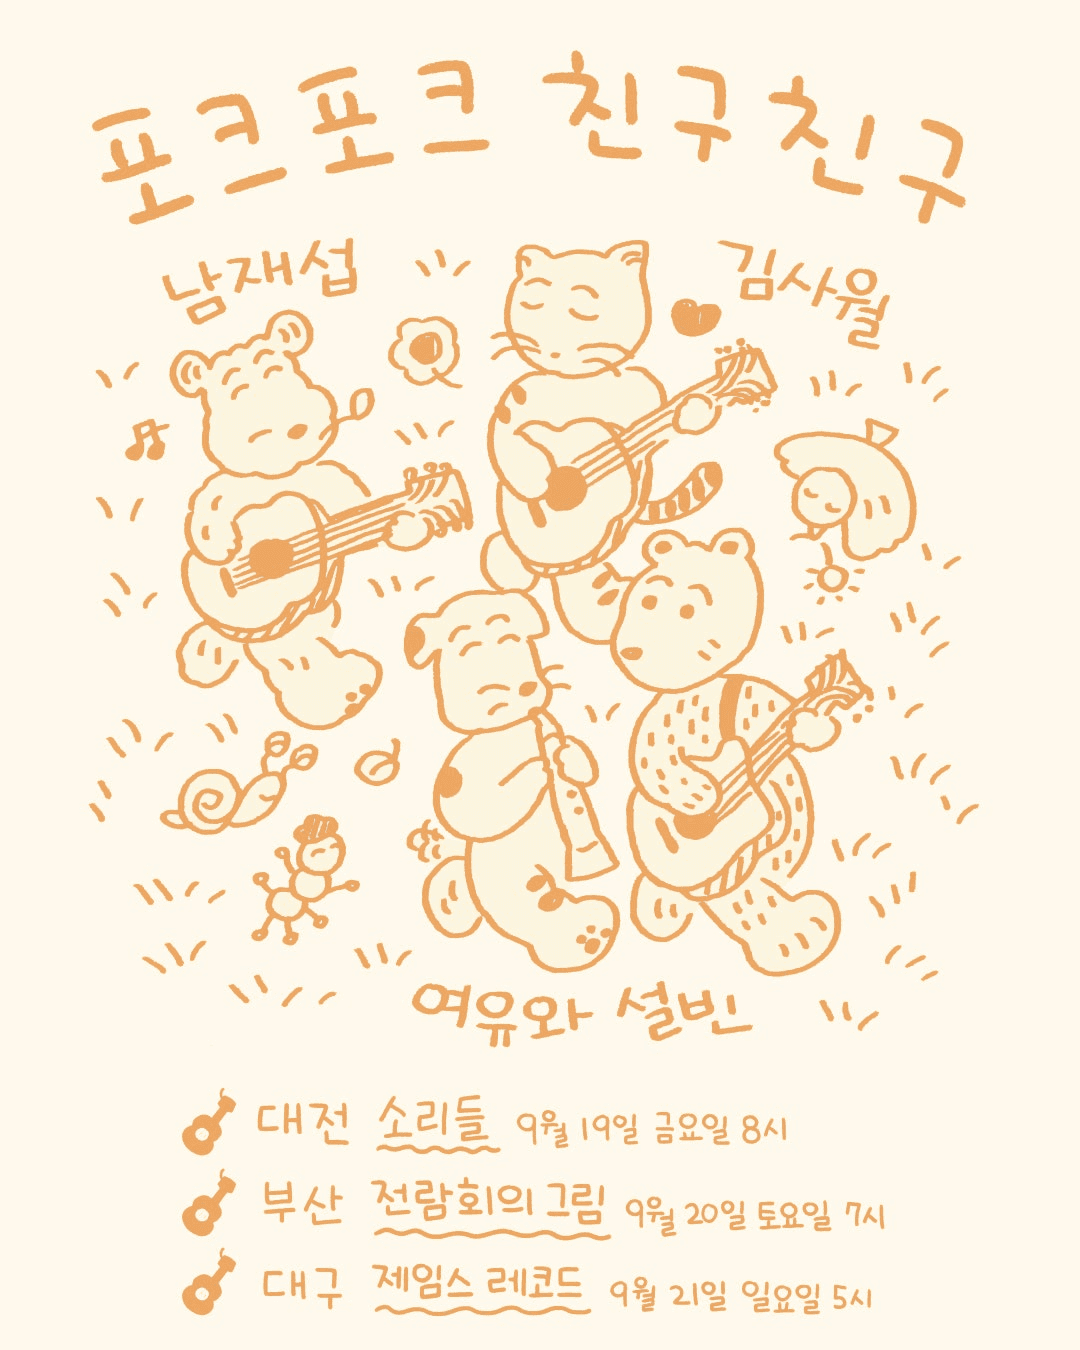 포크포크 친구친구
남재섭
김사월
여유와 설빈
대전 소리들 9월 19일 금요일 8시
부산 전람회의 그림 9월 20일 토요일 7시
대구 제임스 레코드 9월 21일 일요일 5시